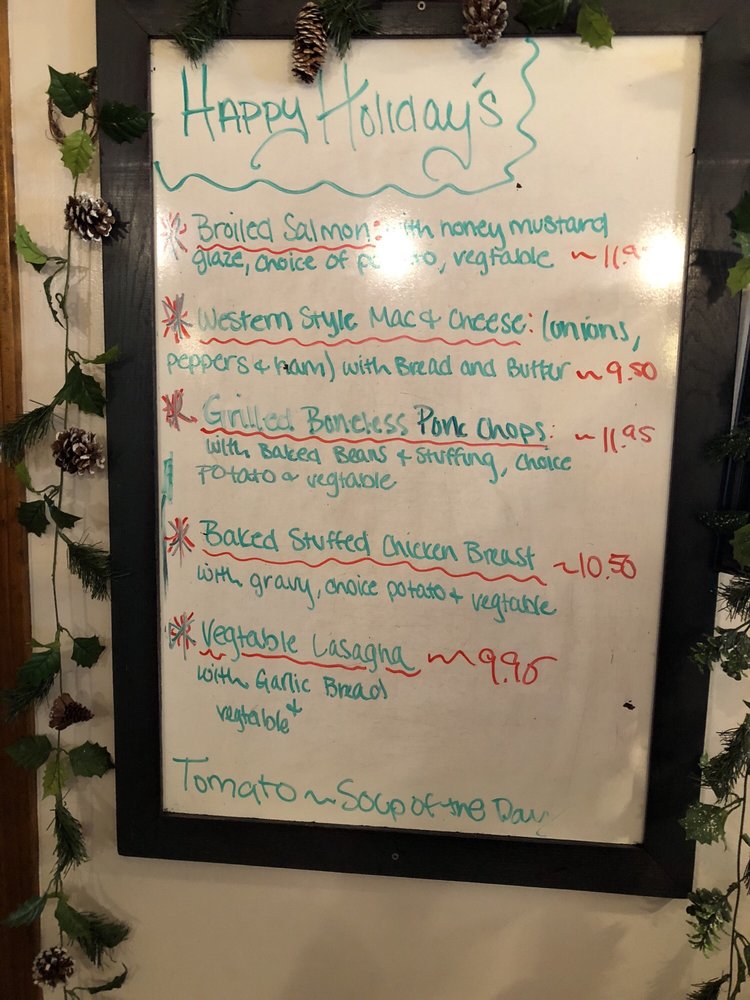 Happy Holiday's
Broiled Salmon: with honey mustard
glaze, choice of potato, vegtable ~ 11.9
Western Style Mac & Cheese: (onions,
peppers & ham) with Bread and Butter ~ 9.50
Grilled Boneless Pork Chops: ~ 11.95
with Baked Beans & Stuffing, choice
Potato & vegtable
Baked Stuffed Chicken Breast ~ 10.50
with gravy, choice potato + vegtable
Vegtable Lasagna ~ 9.95
with Garlic Bread
+
vegtable
Tomato ~ Soup of the Day